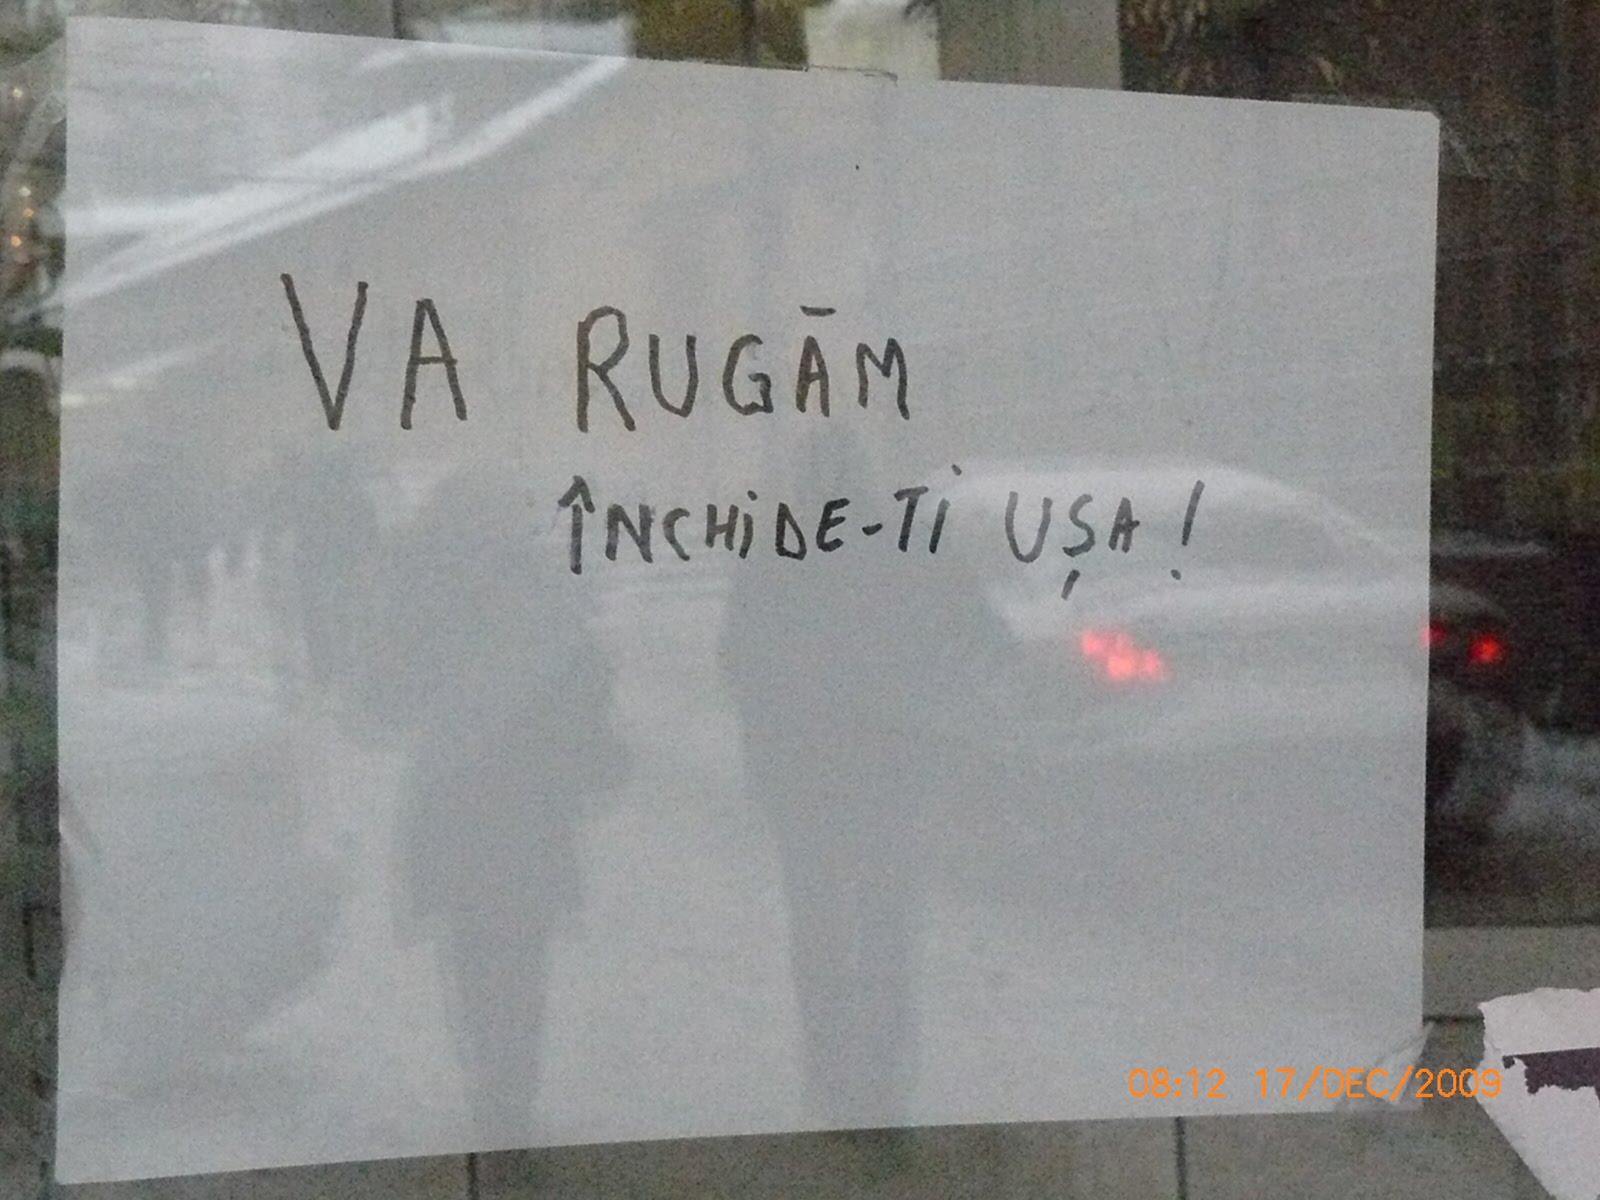 VA RUGĀM
ÎNCHiDE-Ti UȘA!
08:12 17/DEC/2009